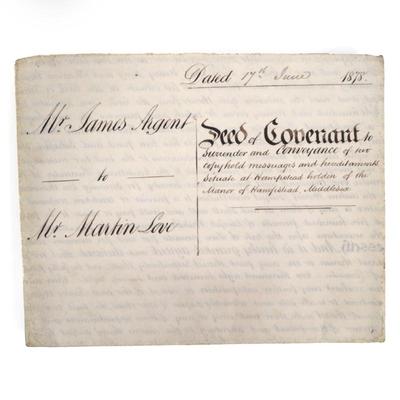 Dated 17th June 1878.
Mr. James Argent
to
Mr. Martin Love
Deed of Covenant to
surrender and Conveyance of two
copyhold messuages and hereditaments
situate at Hampstead holden of the
Manor of Hampstead, Middlesex